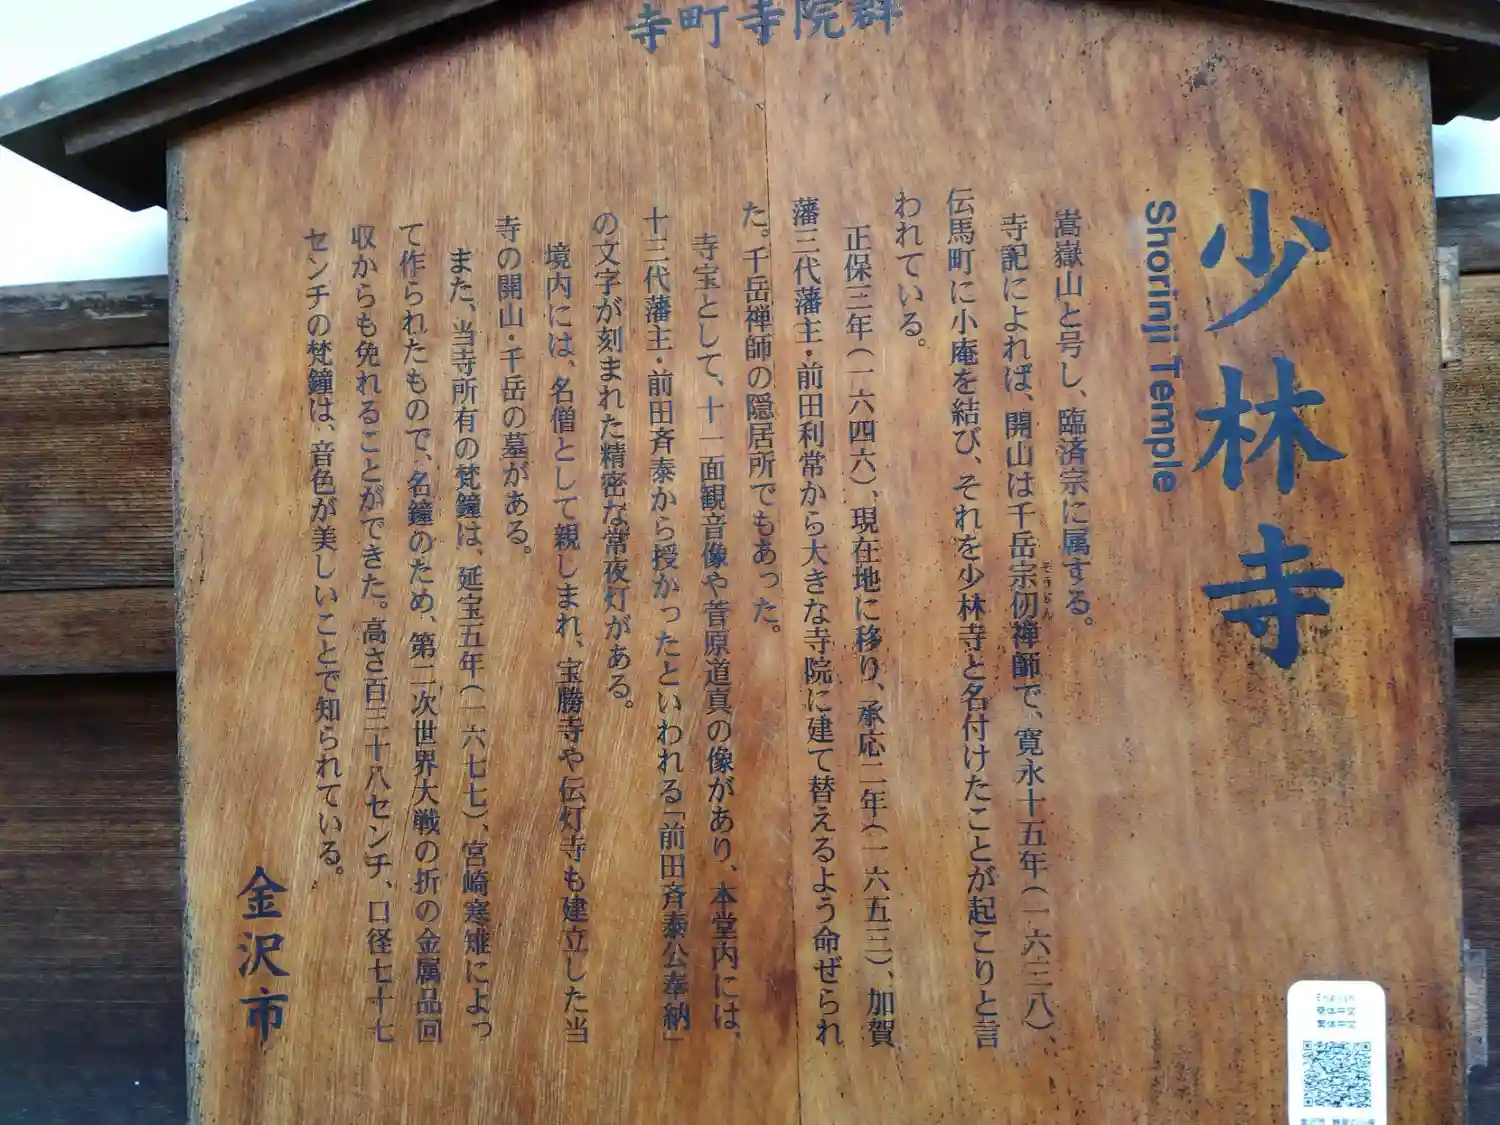 寺町寺院群
少林寺
Shorinji Temple
嵩嶽山と号し、臨済宗に属する。
寺記によれば、開山は千岳宗仞禅師で、寛永十五年(一六三八)、
そうじん
伝馬町に小庵を結び、それを少林寺と名付けたことが起こりと言
われている。
正保三年(一六四六)、現在地に移り、承応二年(一六五三)、加賀
藩三代藩主・前田利常から大きな寺院に建て替えるよう命ぜられ
た。千岳禅師の隠居所でもあった。
寺宝として、十一面観音像や菅原道真の像があり、本堂内には、
十三代藩主・前田斉泰から授かったといわれる「前田斉泰公奉納」
の文字が刻まれた精密な常夜灯がある。
境内には、名僧として親しまれ、宝勝寺や伝灯寺も建立した当
寺の開山・千岳の墓がある。
また、当寺所有の梵鐘は、延宝五年(一六七七)、宮崎寒雉によっ
て作られたもので、名鐘のため、第二次世界大戦の折の金属品回
収からも免れることができた。高さ百三十八センチ、口径七十七
センチの梵鐘は、音色が美しいことで知られている。
金沢市
English
简体中文
繁体中文